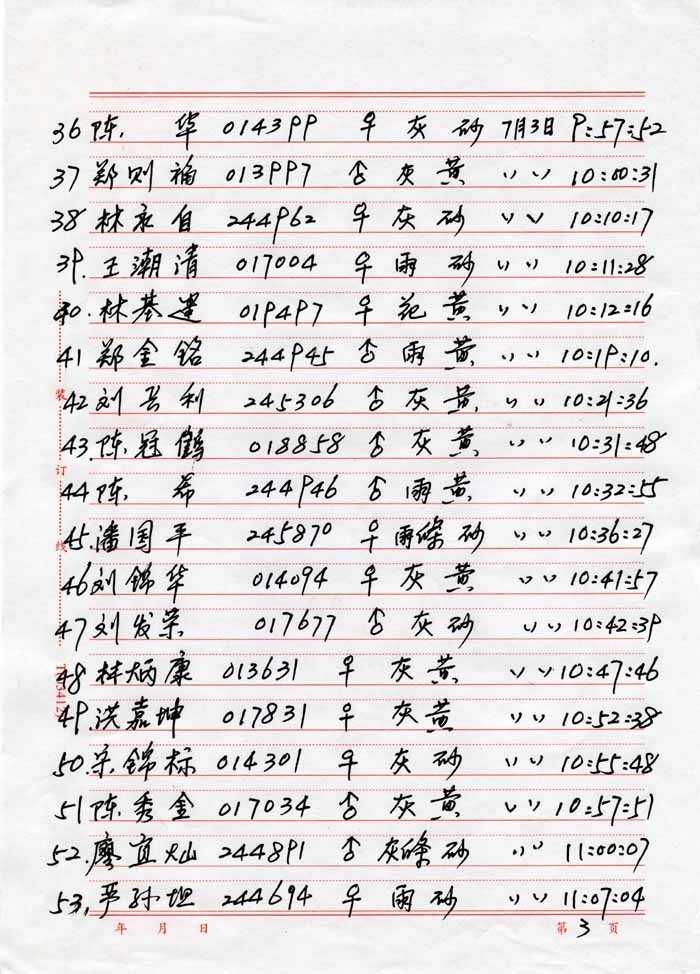 36 陈 华 014399 ♀ 灰 砂 7月3日 9:57:52
37 郑则福 013997 ♂ 灰 黄 〃 10:00:31
38 林永自 244962 ♀ 灰 砂 〃 10:10:17
39. 王潮清 017004 ♀ 雨 砂 〃 10:11:28
40. 林基 019497 ♀ 花 黄 〃 10:12:16
41 郑金铭 244945 ♂ 雨 黄 〃 10:19:10.
42 刘长利 245306 ♂ 灰 黄 〃 10:21:36
43. 陈冠鹤 018858 ♂ 灰 黄 〃 10:31:48
44 陈 希 244946 ♂ 雨 黄 〃 10:32:55
45. 潘国平 245870 ♀ 雨條 砂 〃 10:36:27
46 刘锦华 014094 ♀ 灰 黄 〃 10:41:57
47 刘发荣 017677 ♂ 灰 砂 〃 10:42:39
48 林炳康 013631 ♀ 灰 黄 〃 10:47:46
49. 洪嘉坤 017831 ♀ 灰 黄 〃 10:52:38
50. 宋锦标 014301 ♀ 灰 砂 〃 10:55:48
51 陈秀金 017034 ♂ 灰 黄 〃 10:57:51
52. 廖宜灿 244891 ♂ 灰條 砂 〃 11:00:07
53. 严孙坦 244694 ♀ 雨 砂 〃 11:07:04
装
订
线
年 月 日 第 3 页